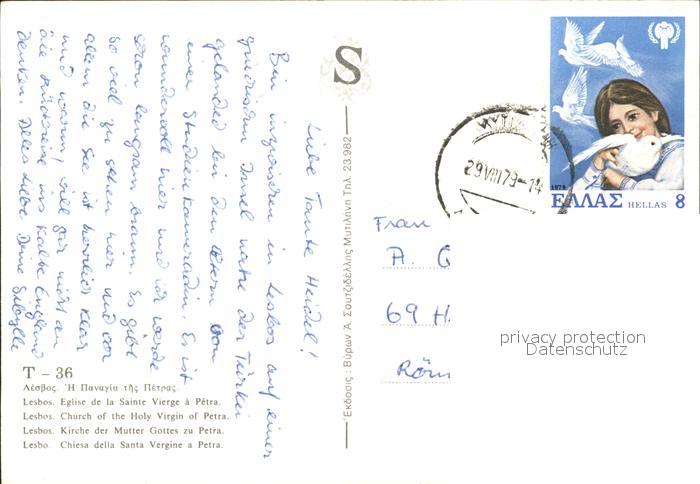 Liebe Tante Heidel!
Bin inzwischen in Lesbos auf einer
griechischen Insel nahe der Türkei
gelandet bei den Eltern von
einer Studienkameradin. Es ist
wundervoll hier und ich werde
schon langsam braun. Es gibt
so viel zu sehen hier und vor
allem die See ist herrlich klar
und warm, will gar nicht an
die Rückreise ins kalte England
denken. Alles Liebe Deine Sibylle
T - 36
Λέσβος. Ἡ Παναγία τῆς Πέτρας.
Lesbos. Eglise de la Sainte Vierge à Pétra.
Lesbos. Church of the Holy Virgin of Petra.
Lesbos. Kirche der Mutter Gottes zu Petra.
Lesbo. Chiesa della Santa Vergine a Petra.
S
Ἔκδοσις: Βύρων Α. Σουτζιδέλλης Μυτιλήνη Τηλ. 23.982
29 VIII 79-14
1979
ΕΛΛΑΣ HELLAS 8
Frau
A. G
69 H
Röm
privacy protection
Datenschutz